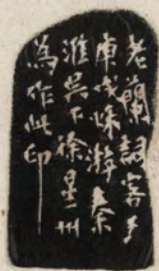 老蘭詞客于
庚戌嵘游秦
淮吳下徐星州
為作此印